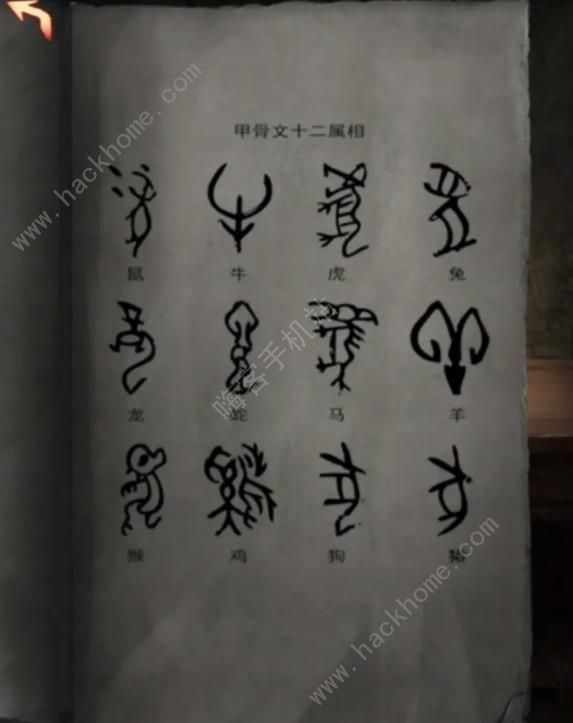 甲骨文十二属相
鼠 牛 虎 兔
龙 蛇 马 羊
猴 鸡 狗 猪
www.hackhome.com
嗨客手机站
www.hackhome.com